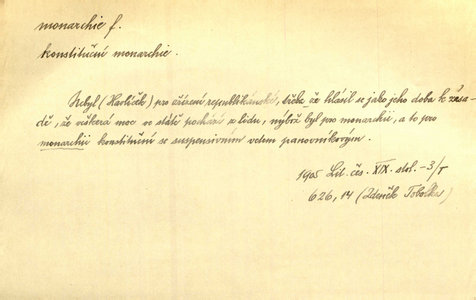 monarchie f.
konstituční monarchie.
Nebyl (Havlíček) pro zřízení republikánské, třeba že hlásil se jako jeho doba k zása-
dě, že veškerá moc ve státě pochází z lidu, nýbrž byl pro monarchii, a to pro
monarchii konstituční se suspensivním vetem panovníkovým.
1905 Lit. čes. XIX. stol. -3/I
626, 14 (Zdeněk Tobolka)